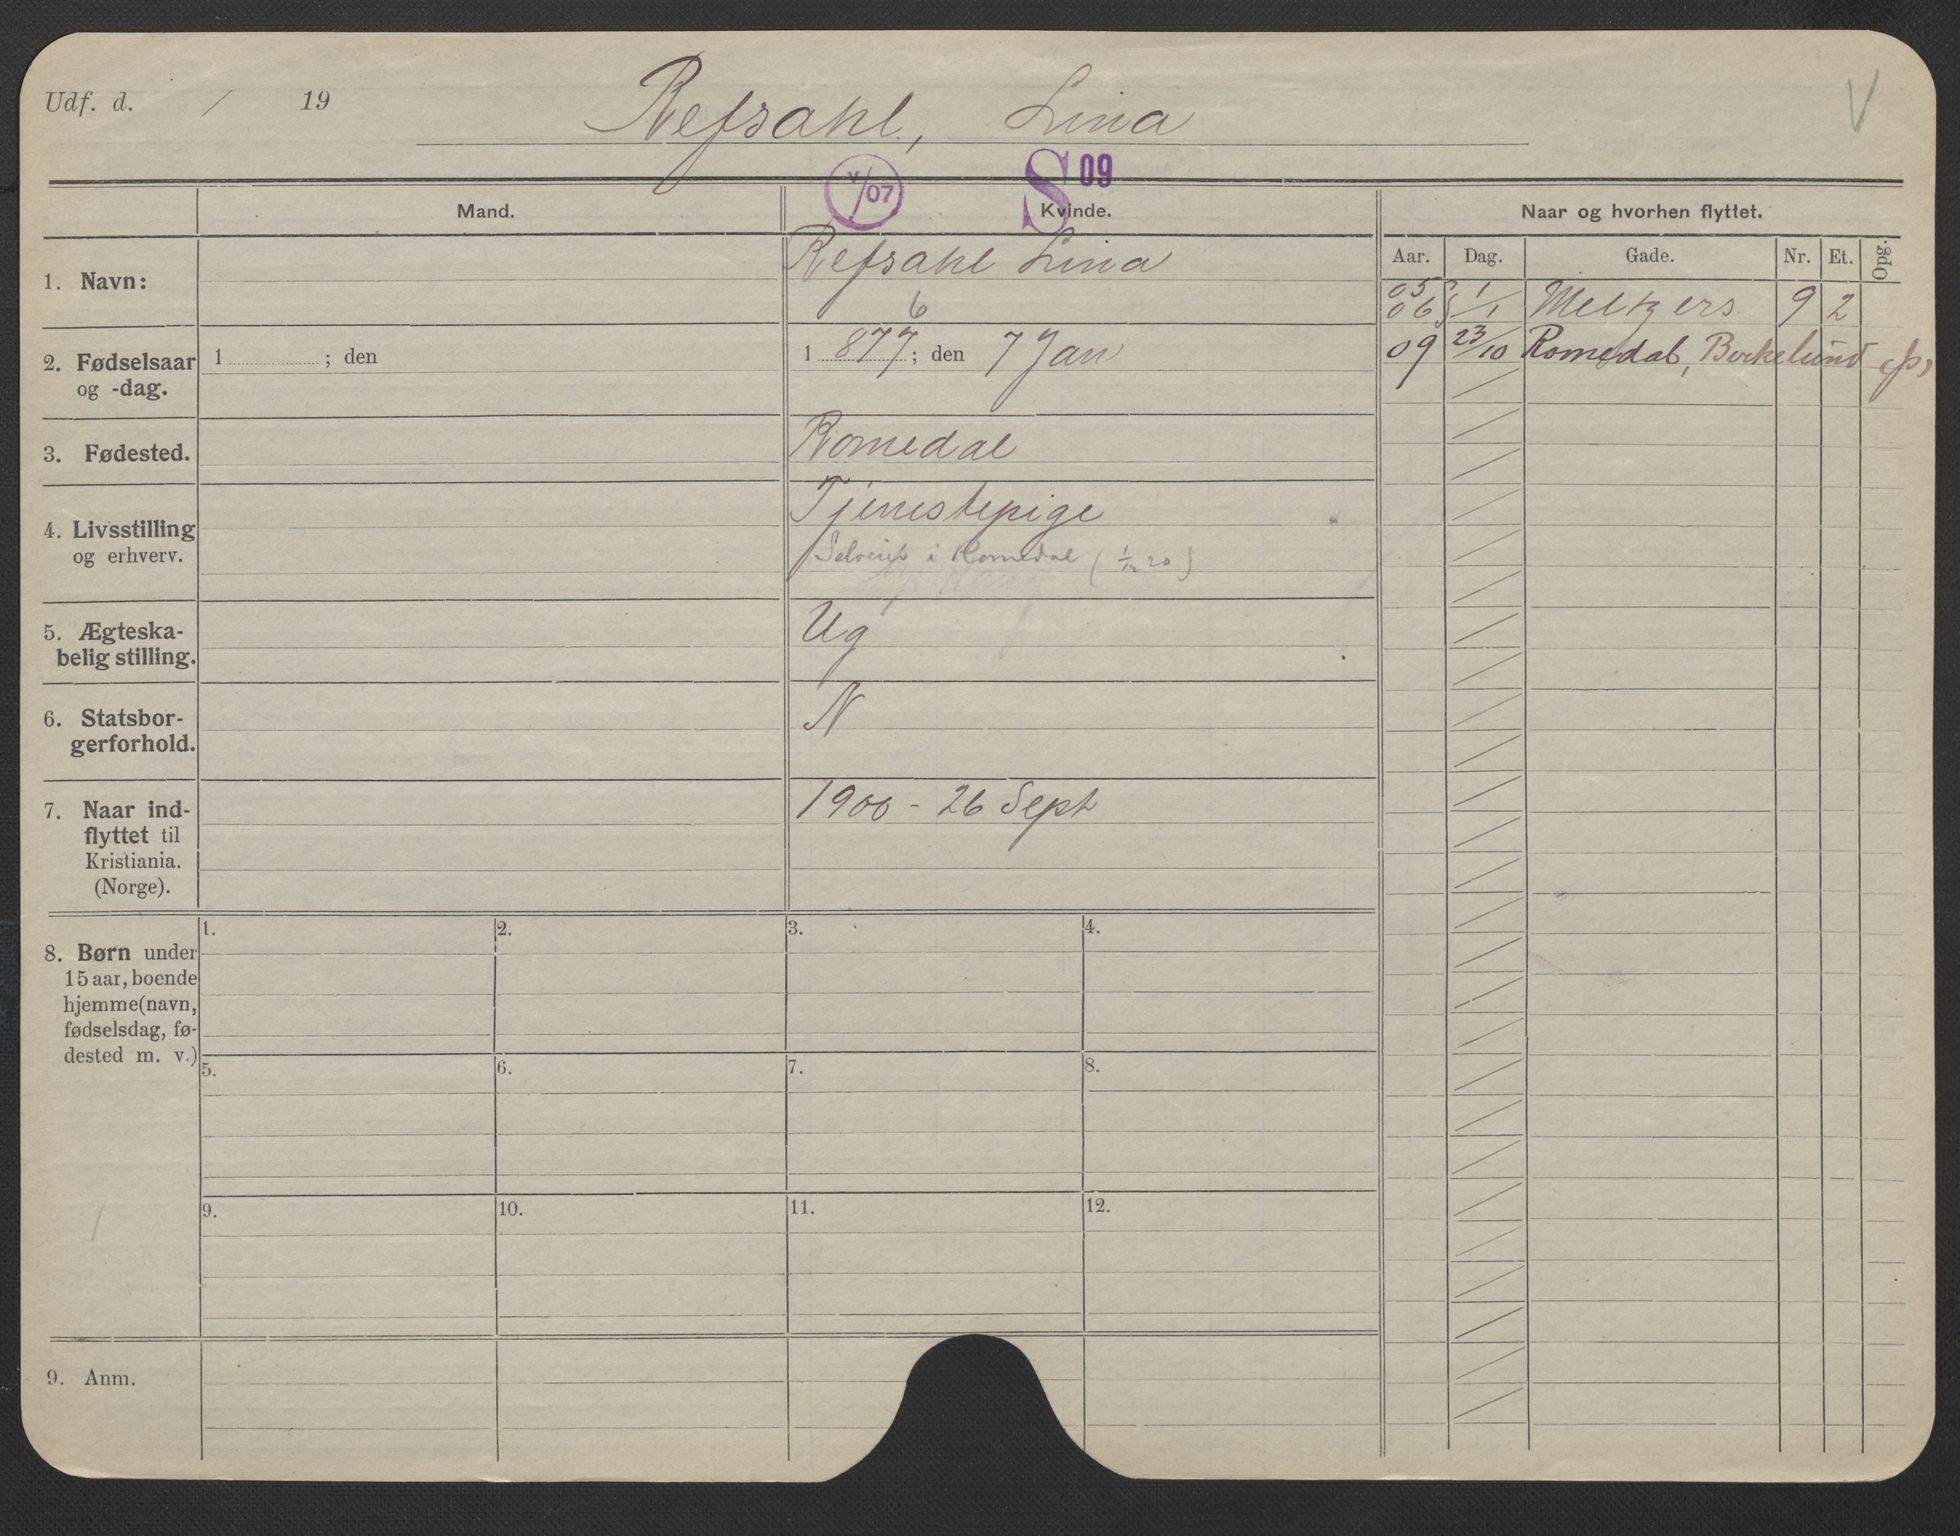 Udf. d. / 19
Refsahl, Lina
V
V/07
S 09
Mand.
Kvinde.
Naar og hvorhen flyttet.
Aar. Dag. Gade. Nr. Et. Opg.
1. Navn:
Refsahl Lina
05 1/1
06 Meltzers 9 2
2. Fødselsaar
og -dag.
1 ; den
6
1 877 ; den 7 Jan
09 23/10 Romedal,
3. Fødested.
Romedal
4. Livsstilling
og erhverv.
Tjenestepige
i Romedal (1/12 20)
5. Ægteska-
belig stilling.
Ug
6. Statsbor-
gerforhold.
N
7. Naar ind-
flyttet til
Kristiania.
(Norge).
1900 - 26 Sept
8. Børn under
15 aar, boende
hjemme(navn,
fødselsdag, fø-
dested m. v.)
1. 2. 3. 4.
5. 6. 7. 8.
9. 10. 11. 12.
9. Anm.